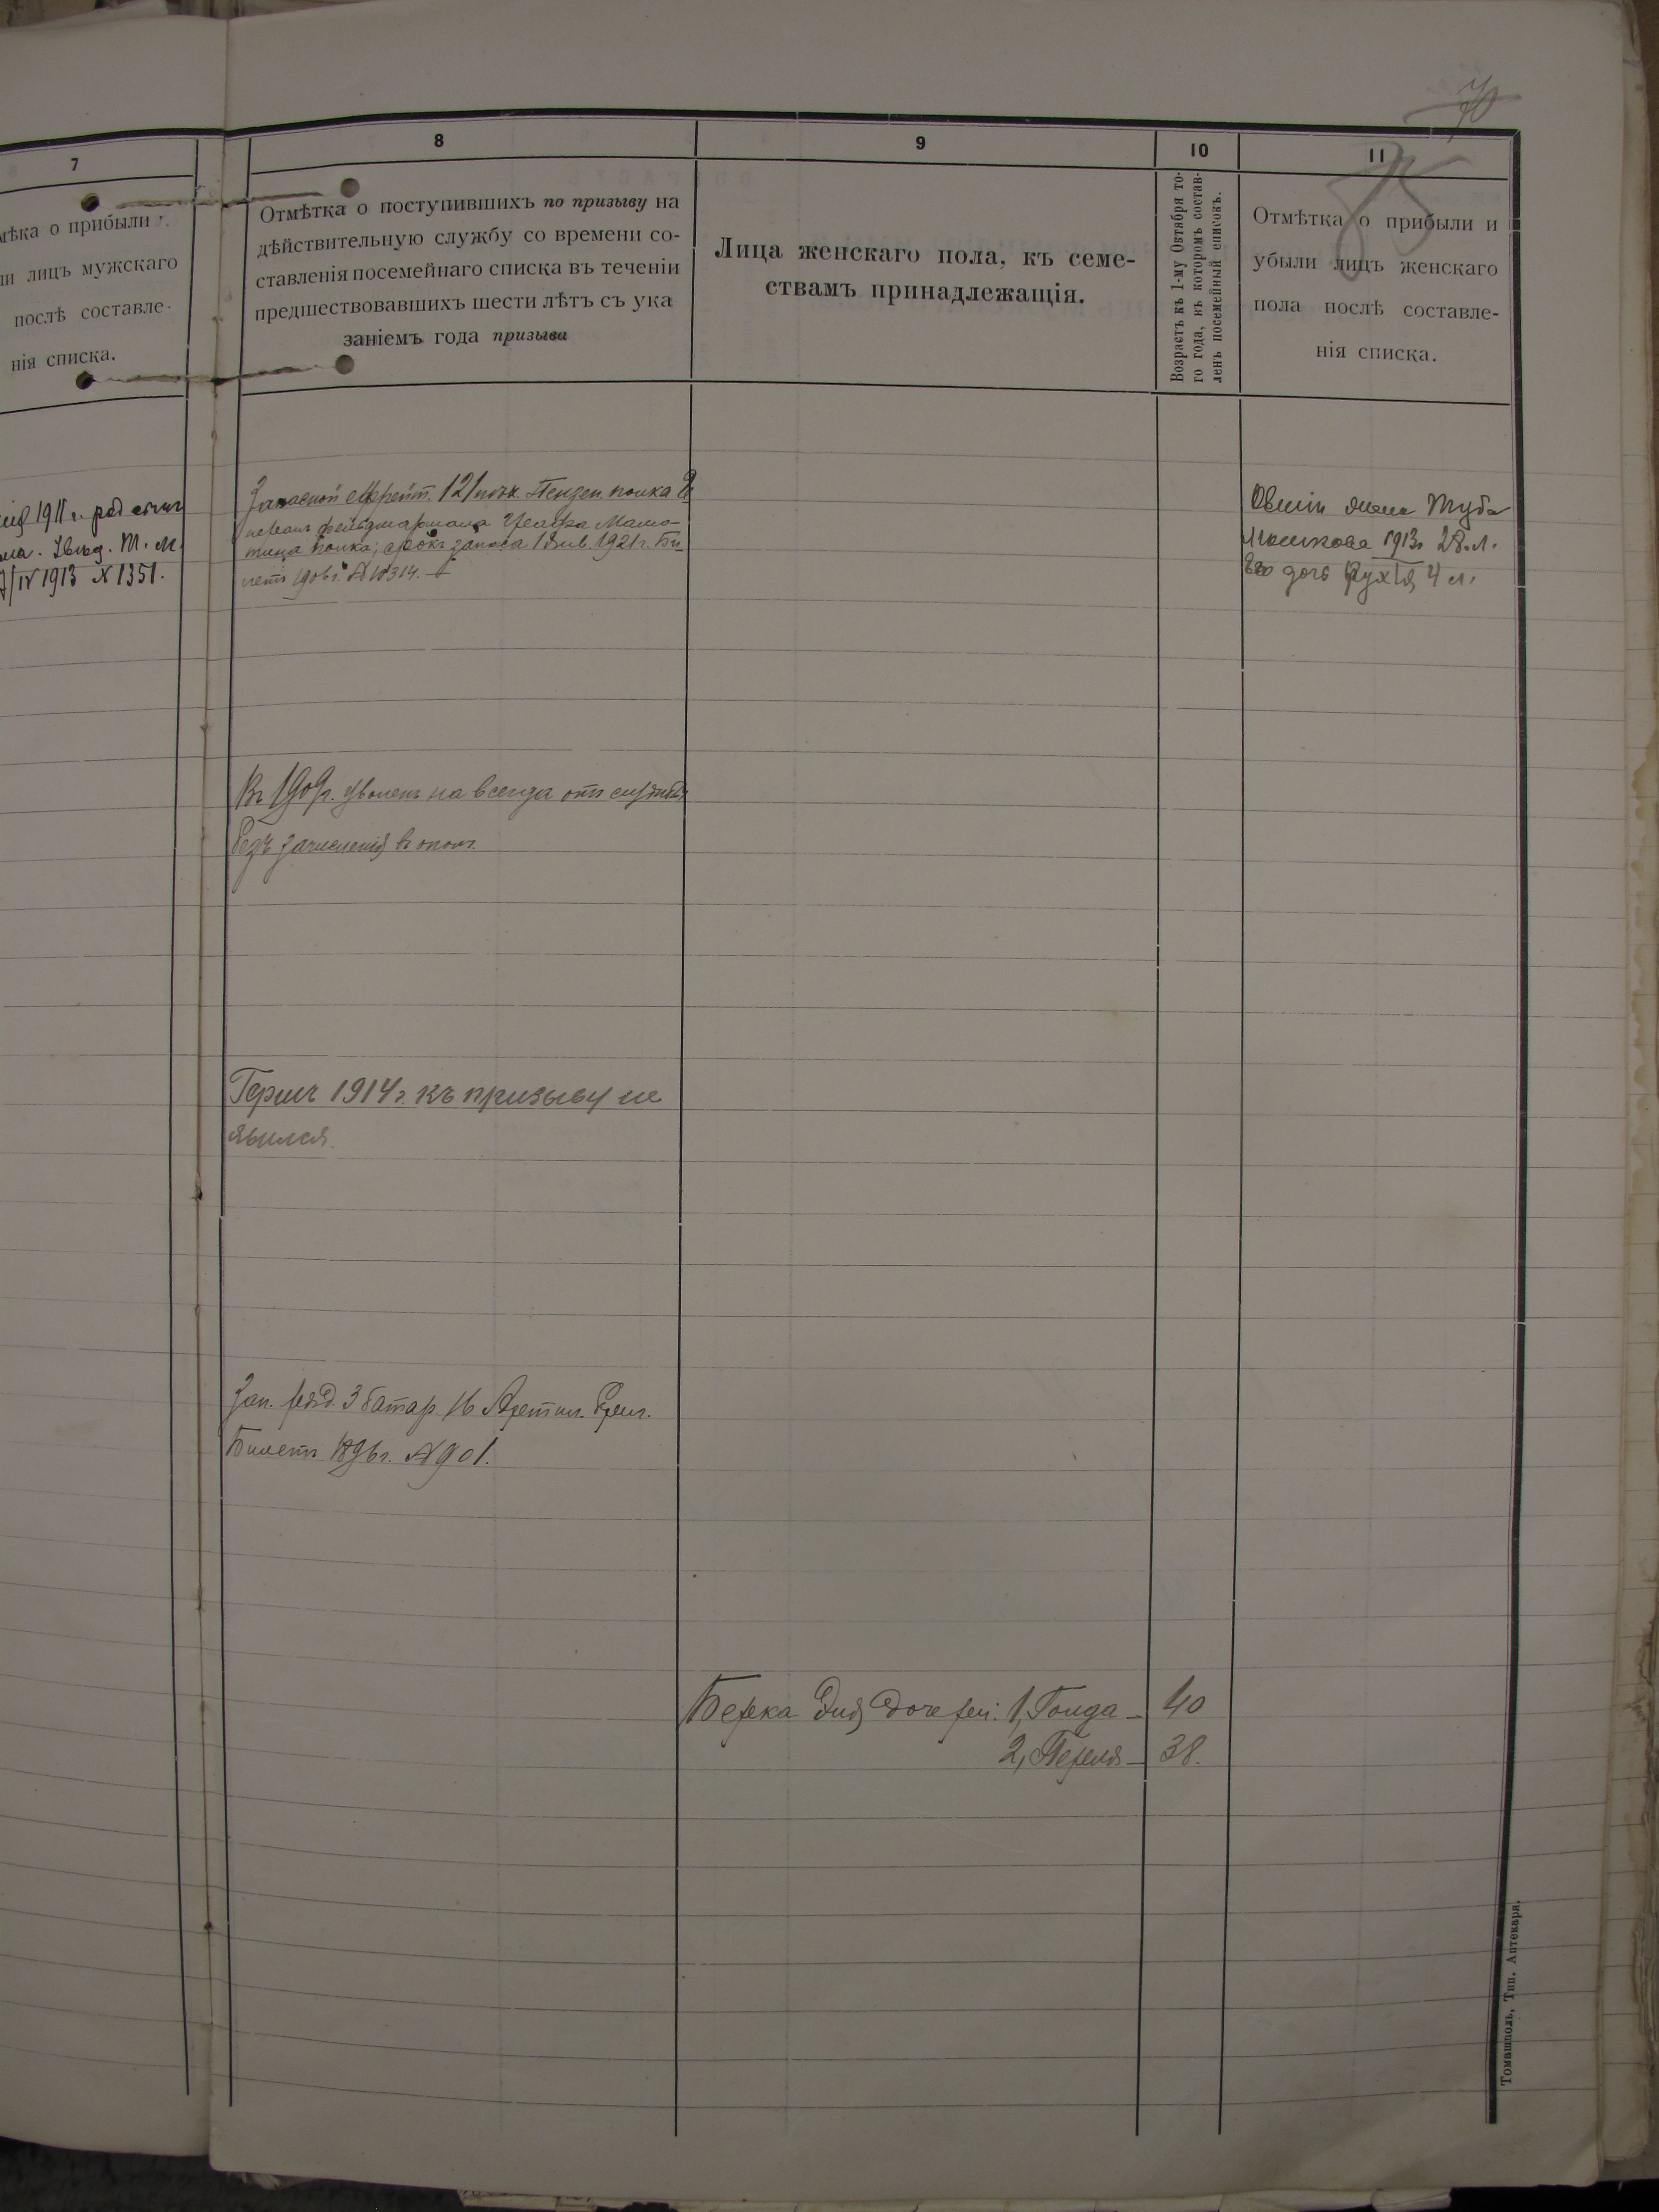 70
7
8
9
10
11
мѣка о прибыли
ли лицъ мужскаго
послѣ составле-
нія списка.
Отмѣтка о поступившихъ по призыву на
дѣйствительную службу со времени со-
ставленія посемейнаго списка въ теченіи
предшествовавшихъ шести лѣтъ съ ука
заніемъ года призыва
Лица женскаго пола, къ семе-
ствамъ принадлежащія.
Возрастъ къ 1-му Октября то-
го года, къ которомъ состав-
ленъ посемейный списокъ.
Отмѣтка о прибыли и
убыли лицъ женскаго
пола послѣ составле-
нія списка.
1911 г. род сынъ
М. М.
IV 1913 N 1351.
Запасной Ефрейт. 121 пѣх. Пензен. полка Ге
нералъ фельдмаршала Графа Милю-
тина полка; срокъ запаса 1 Янв. 1921 г. Би
летъ 190 г. N 10314.
Въ 1909 г. уволенъ на всегда отъ службы
безъ зачисленія въ ополч.
Гершъ 1914 г. къ призыву не
явился.
Зап. ряд. 3 батар. 16 Артил. Бриг.
Билетъ 1896 г. N 901.
Берка дочери: 1, Голда — 40
2, Переля — 38.
Овшія жена Туба
Мошкова 1913 г. 28 л.
Его дочь Рухля 4 л.
Томашполь, Тип. Аптекаря.